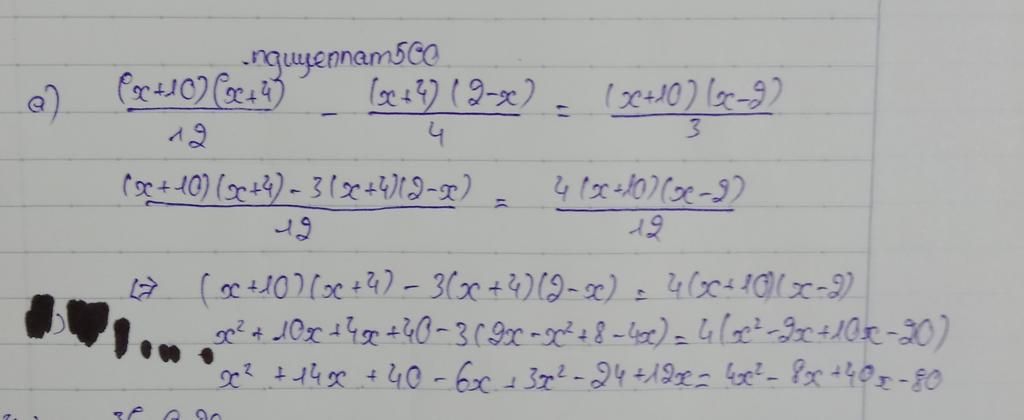 .nguyennam500
a) (x+10)(x+4)/12 - (x+4)(2-x)/4 = (x+10)(x-2)/3
(x+10)(x+4)-3(x+4)(2-x)/12 = 4(x+10)(x-2)/12
<=> (x+10)(x+4)-3(x+4)(2-x) = 4(x+10)(x-2)
x²+10x+4x+40-3(2x-x²+8-4x)=4(x²-2x+10x-20)
x²+14x+40-6x+3x²-24+12x=4x²-8x+40x-80